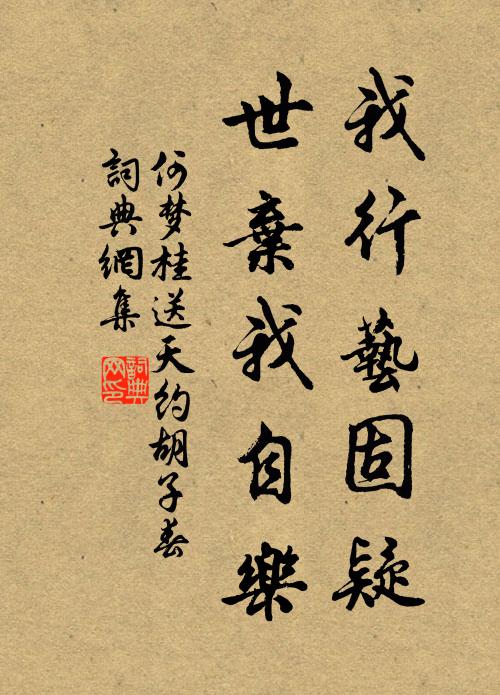 我行藝固疑
世棄我自樂
何梦桂送天約胡子春
詞典網集
詞典網印